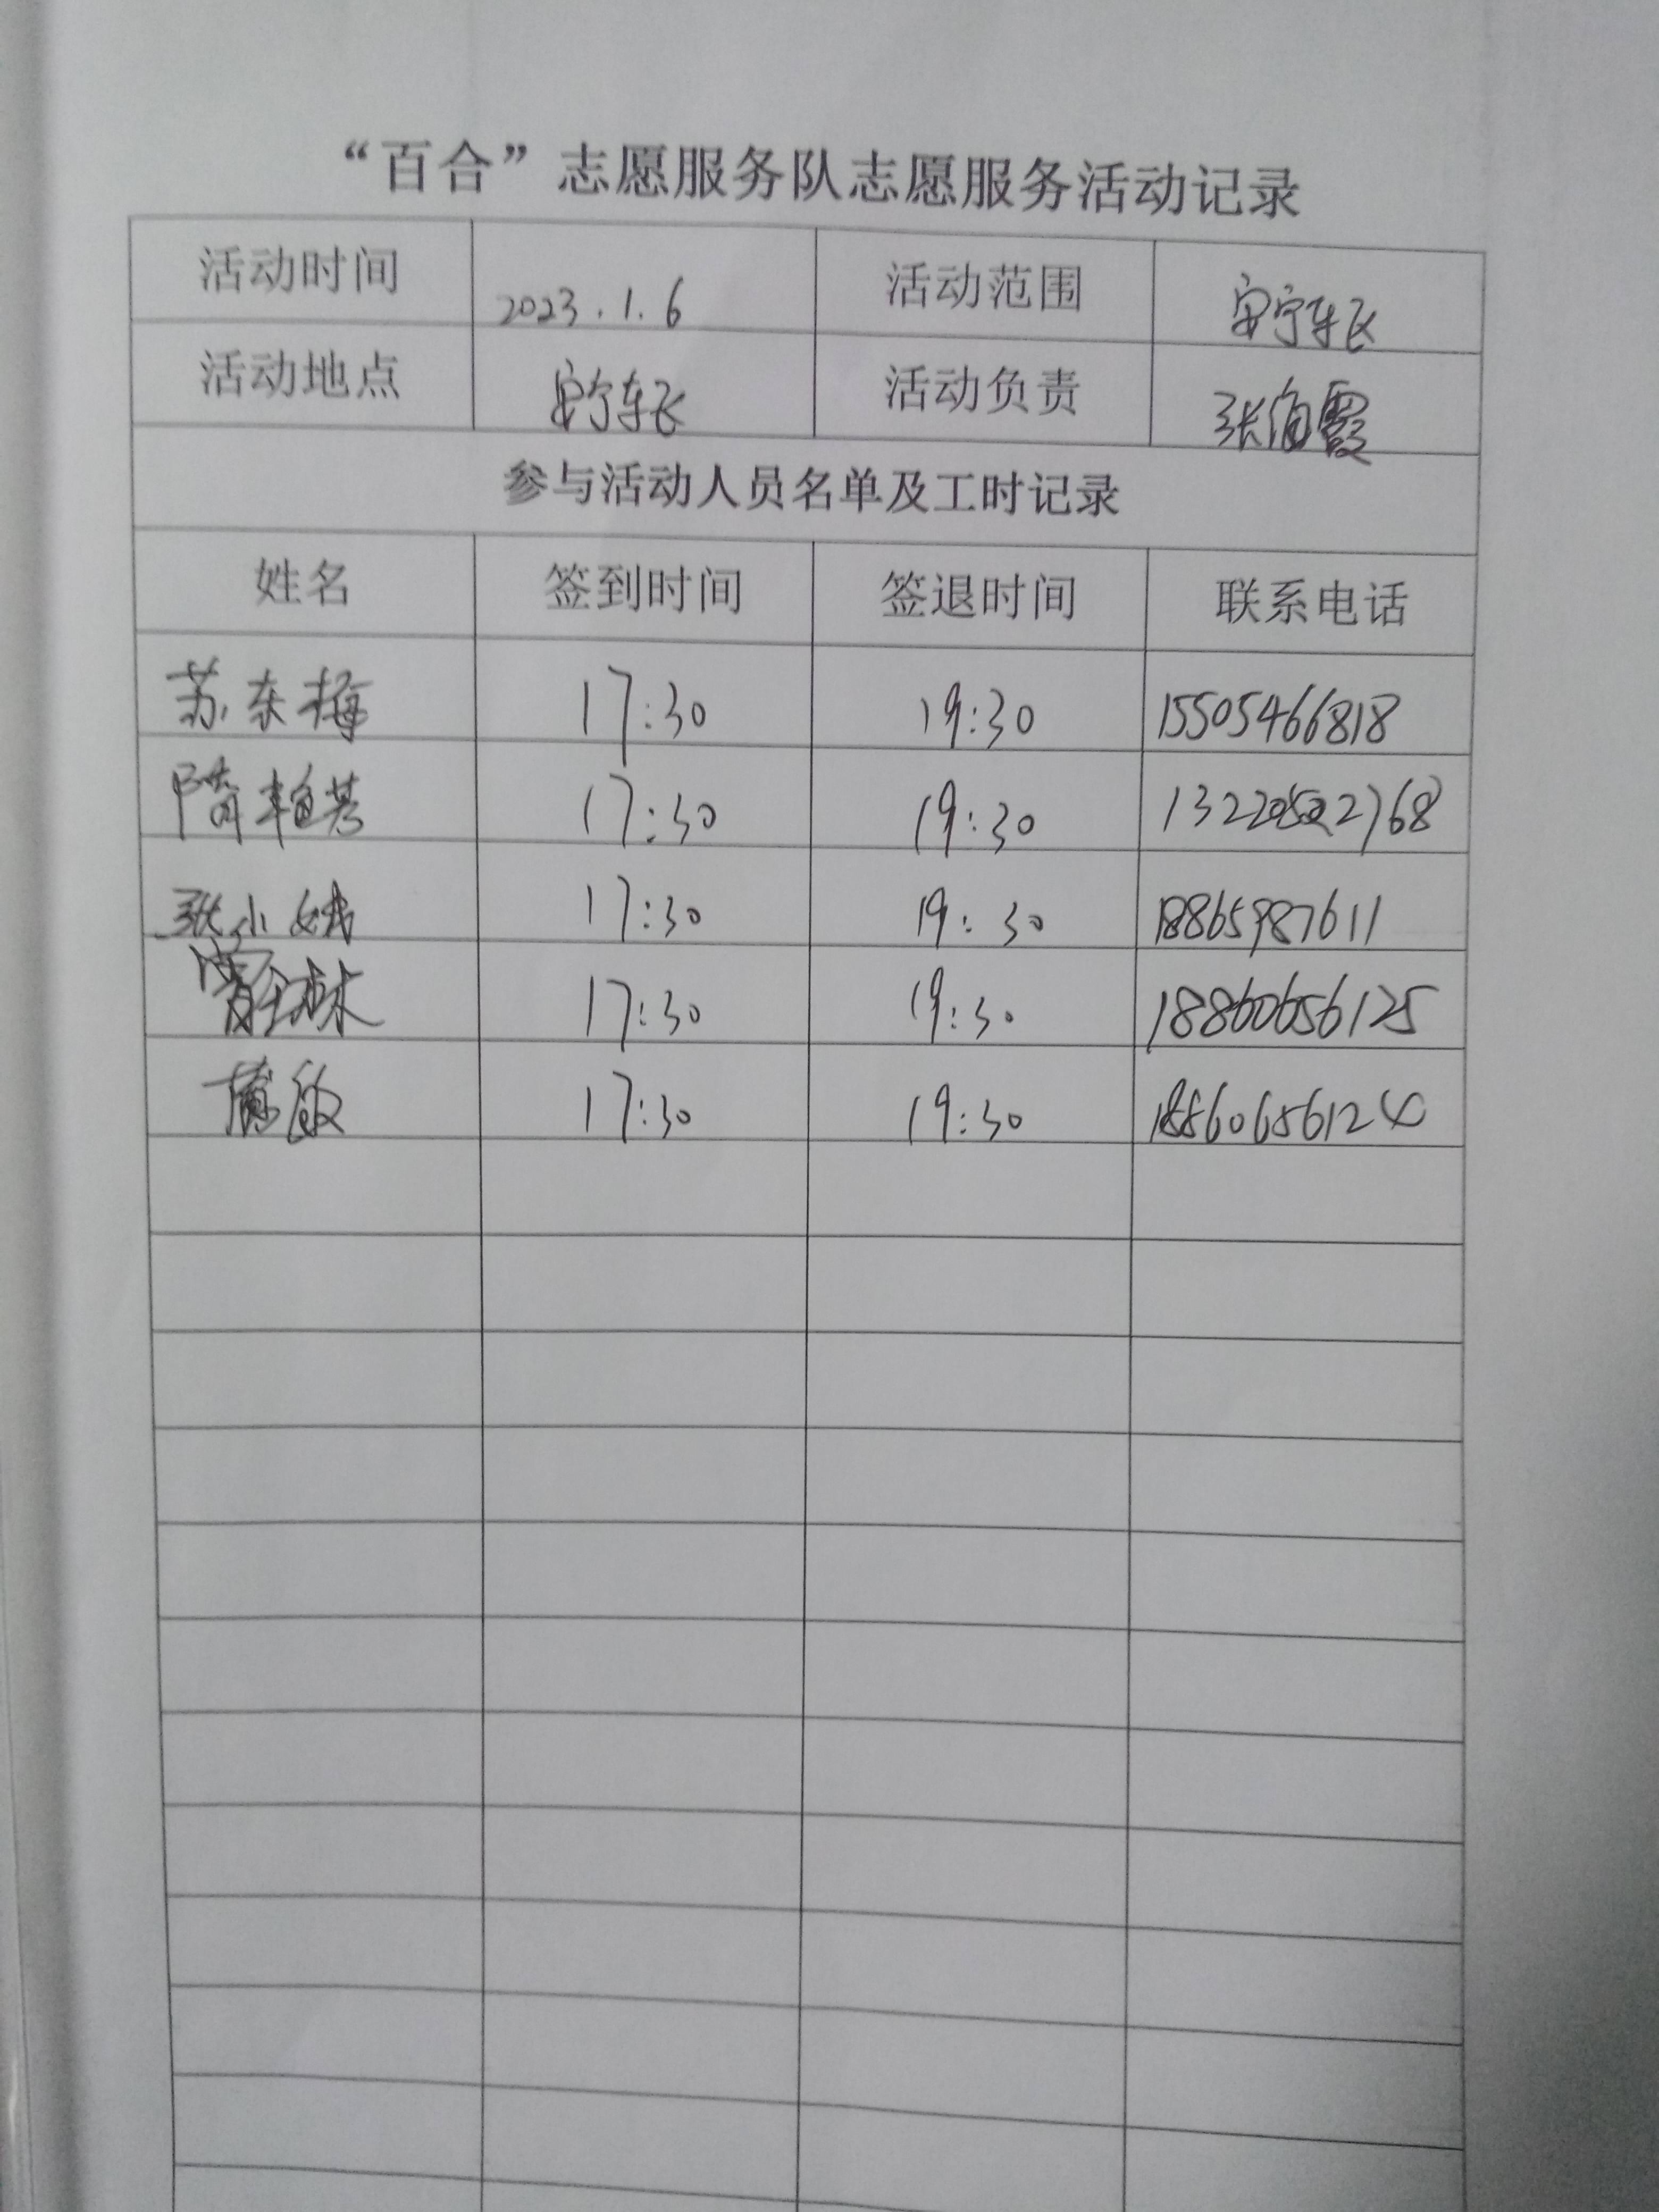 “百合”志愿服务队志愿服务活动记录
活动时间 2023.1.6 活动范围 安宁车飞
活动地点 安宁车飞 活动负责 张海霞
参与活动人员名单及工时记录
姓名 签到时间 签退时间 联系电话
苏东梅 17:30 19:30 15505466818
17:30 19:30
张小娥 17:30 19:30 18865987611
17:30 19:30 18860656125
敏 17:30 19:30